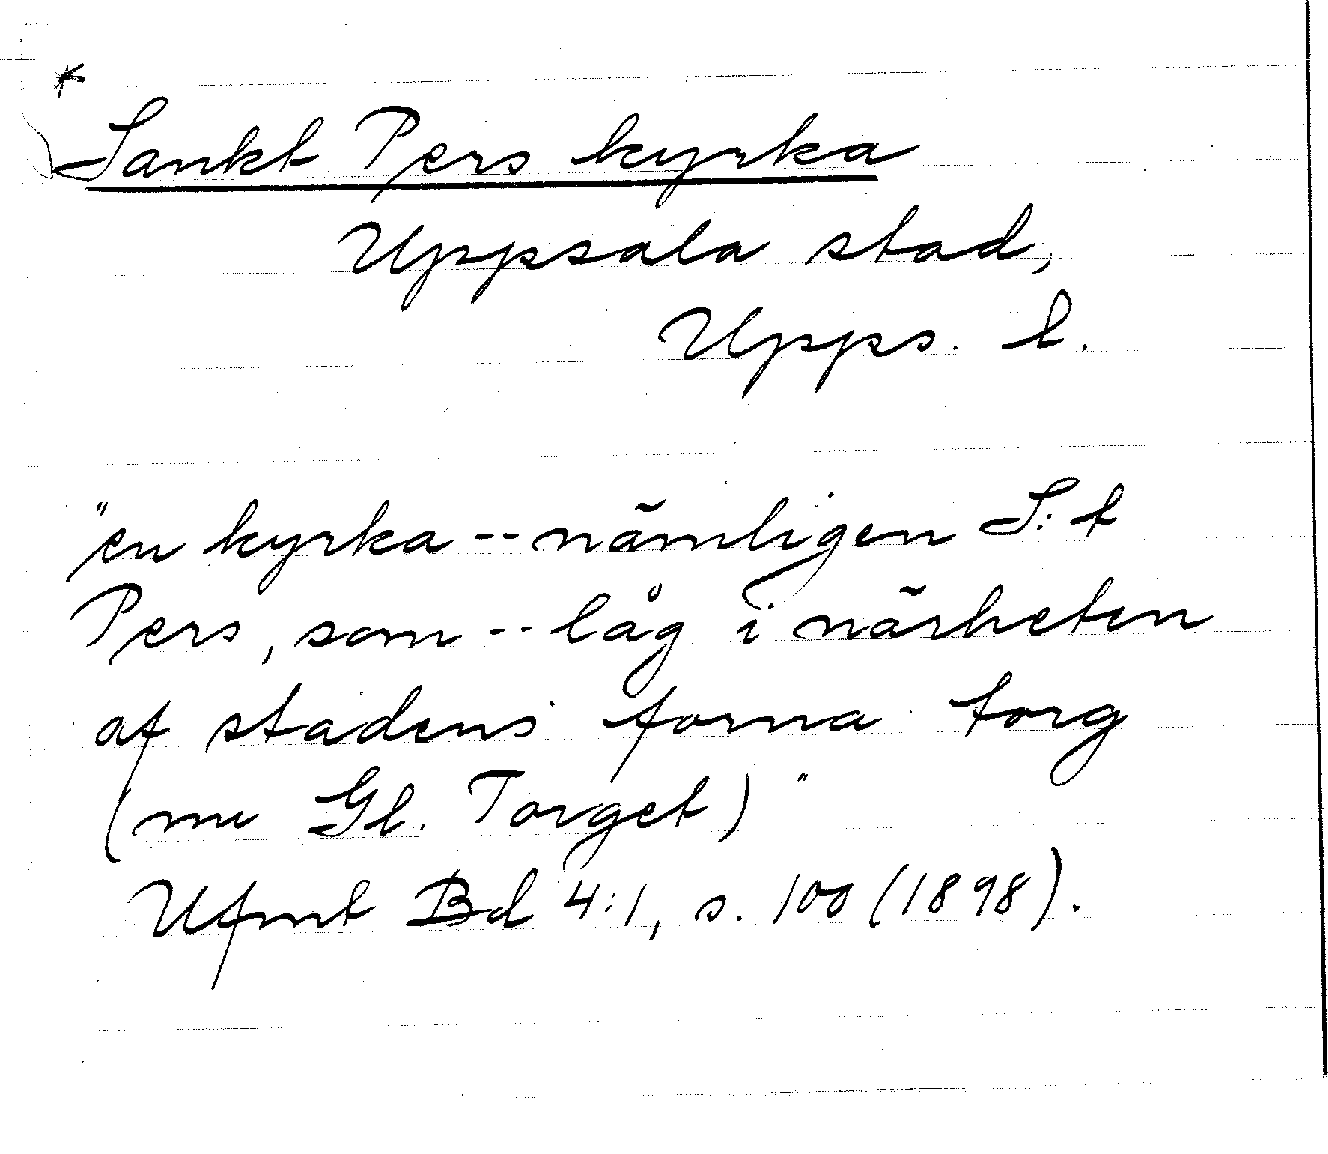 *
Sankt Pers kyrka
Uppsala stad,
Upps. l.
"en kyrka -- nämligen S:t
Pers, som -- låg i närheten
af stadens forna torg
(nu Gl. Torget)"
Ufmt Bd 4:1, s. 100 (1898).